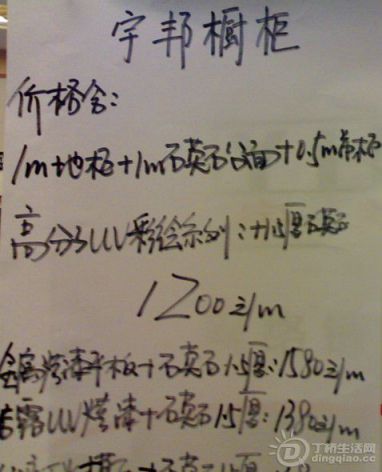 宇邦橱柜
价格含:
1m地柜+1m石英石台面+0.5m吊柜
高分子UV彩绘系列:+1.5厚石英石
1200元/m
金属烤漆平板+石英石1.5厚:1580元/m
UV烤漆+石英石1.5厚:1380元/m
+石英石1.5厚
丁桥生活网
dingqiao.cc